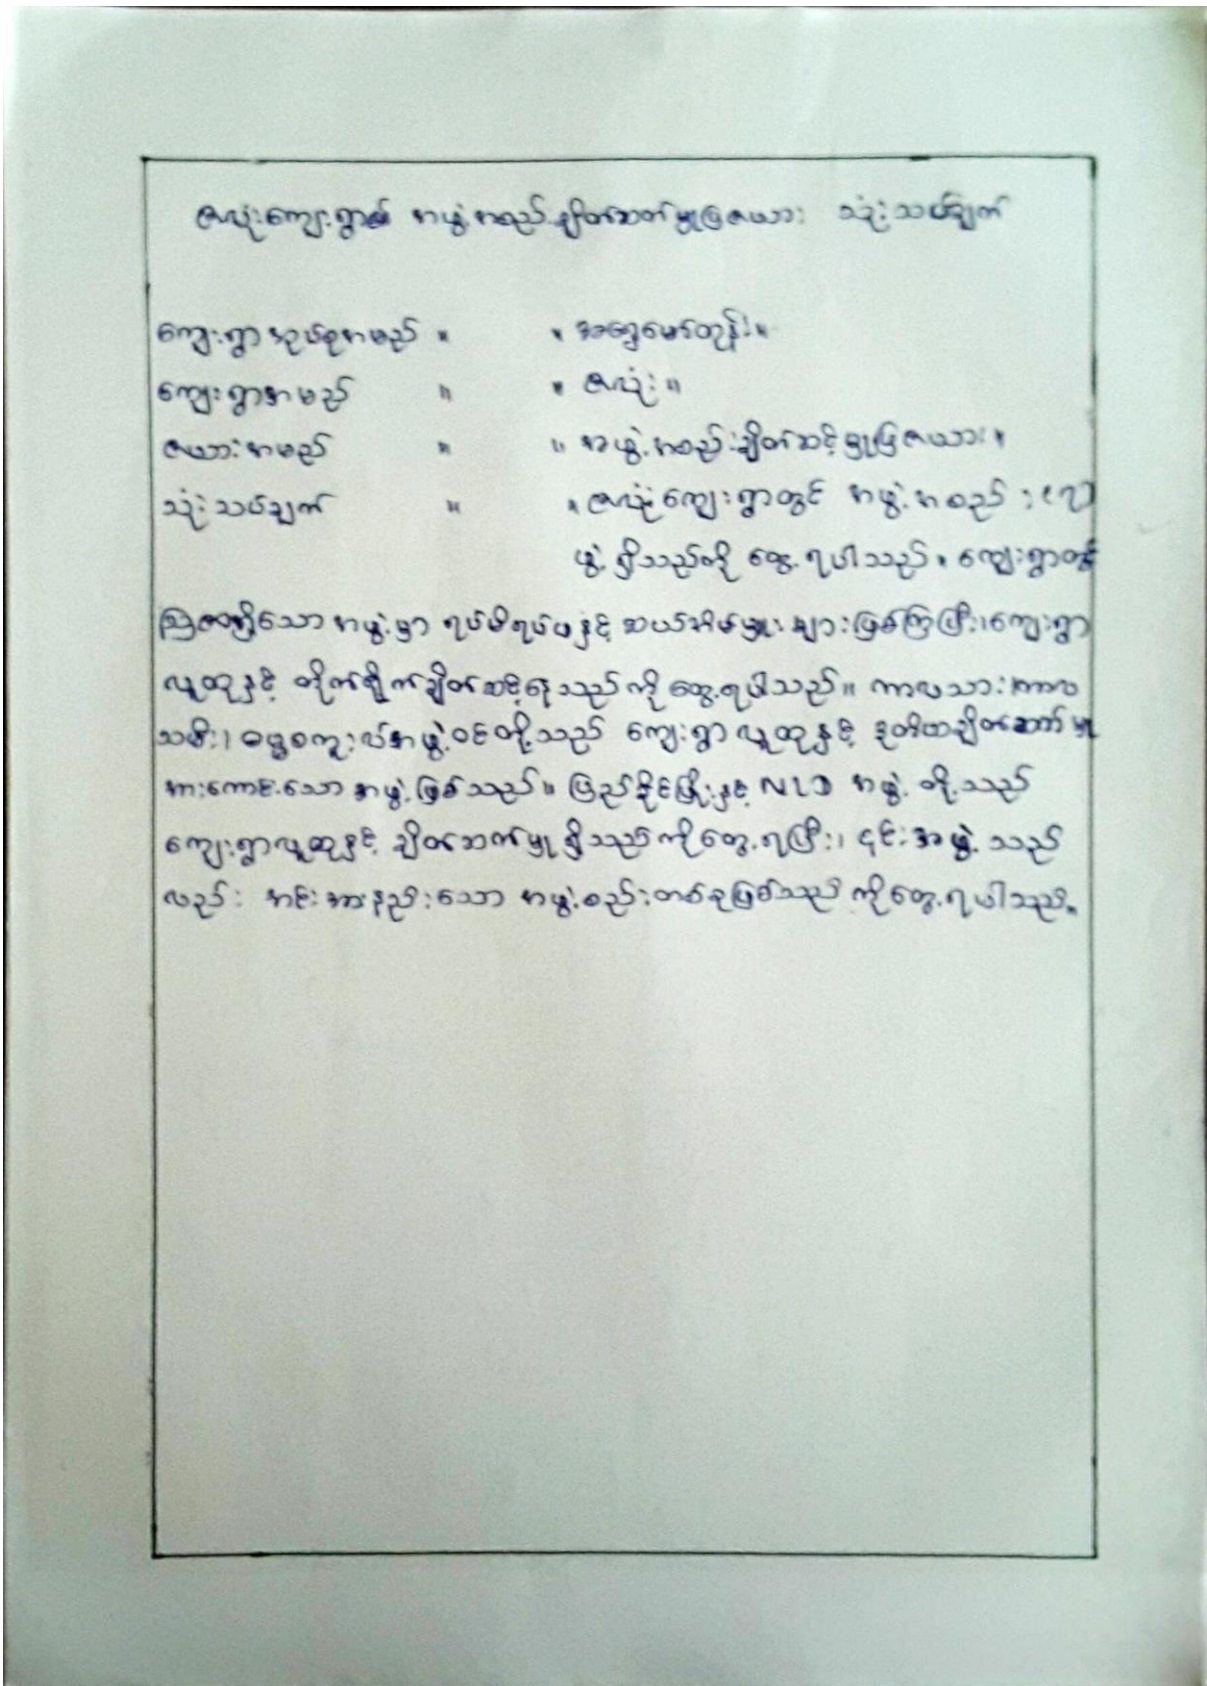 ဇလုံးကျေးရွာ၏ အဖွဲ့အစည်းချိတ်ဆက်မှုပြဇယား သုံးသပ်ချက်
ကျေးရွာအုပ်စုအမည် ။ ။ အရှေ့မော်တုန်း။
ကျေးရွာအမည် ။ ။ ဇလုံး။
ဇယားအမည် ။ ။ အဖွဲ့အစည်းချိတ်ဆင့်မှုပြဇယား။
သုံးသပ်ချက် ။ ။ ဇလုံးကျေးရွာတွင် အဖွဲ့အစည်း (၇)
ဖွဲ့ ရှိသည်ကို တွေ့ရပါသည်။ ကျေးရွာတွင်
ဩဇာရှိသော အဖွဲ့မှာ ရပ်မိရပ်ဖနှင့် ဆယ်အိမ်မှူးများဖြစ်ကြပြီး၊ ကျေးရွာ
လူထုနှင့် တိုက်ရိုက်ချိတ်ဆင့်နေသည်ကို တွေ့ရပါသည်။ ကာလသား၊ ကာလ
သမီး၊ ဓမ္မစကူးလ်အဖွဲ့ဝင်တို့သည် ကျေးရွာလူထုနှင့် ဒုတိယချိတ်ဆက်မှု
အားကောင်းသော အဖွဲ့ဖြစ်သည်။ ပြည်ခိုင်ဖြိုးနှင့် NLD အဖွဲ့ တို့သည်
ကျေးရွာလူထုနှင့် ချိတ်ဆက်မှု ရှိသည်ကိုတွေ့ရပြီး၊ ၎င်းအဖွဲ့ သည်
လည်း အင်းအားနည်းသော အဖွဲ့စည်းတစ်ခုဖြစ်သည် ကိုတွေ့ရပါသည်။